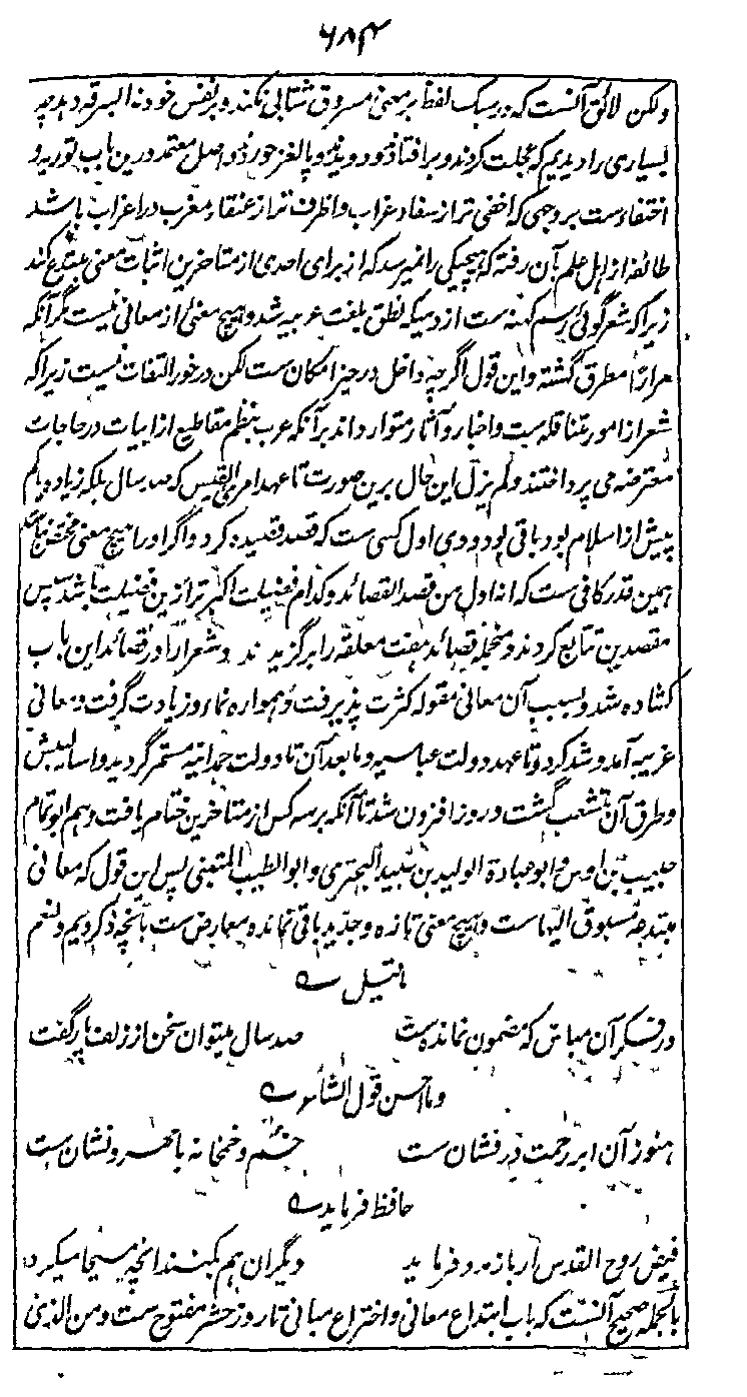 ۶۸۴
ولکن لائق آنست که در سبک لفظ بر معنی مسروق شتابی نکند و بر نفس خود ندا السرقه دهد چه
بسیاری را دیدیم که عجلت کردند و بر افتاد زود و پا لغز خورد و اصل معتمد درین باب توریه و
اختفاءست بروجهی که اخفی تر از سفاد غراب و اظرف تر از عنقاء مغرب در اغراب باشد
طائفه از اهل علم بآن رفته که هیچیکی را نمیرسد که از برای احدی از متاخرین اثبات معنی مبتدع کند
زیرا که شعر گوئی رسم کهنه ست از دمیکه نطق بلغت عربیه شد و هیچ معنی از معانی نیست مگر آنکه
مرارًا مطرق گشته و این قول اگرچه داخل در حیز امکان ست لکن در خور التفات نیست زیرا که
شعر از امور متناقله ست و اخبار و آثار متوارد اند بر آنکه عرب بنظم مقاطیع از ابیات در حاجات
معترضه می پرداختند و لم یزل این حال برین صورت تا عهد امرئ القیس که صد سال بلکه زیاده یا کم
پیش از اسلام بود باقی بود و وی اول کسی ست که قصد قصیده کرد و اگر او را هیچ معنی مختص نباشد
همین قدر کافی ست که انه اول من قصد القصائد و کدام فضیلت اکبر تر ازین فضیلت باشد سپس
مقصدین تتابع کردند و منجمله قصائد هفت معلقه را برگزیدند و شعرا را در قصائد این باب
کشاده شد و بسبب آن معانی مقوله کثرت پذیرفت و همواره نما و زیادت گرفت و معانی
غریبه آمد و شد کرد و تا عهد دولت عباسیه و ما بعد آن تا دولت حمدانیه مستمر گردید و اسالیبش
و طرق آن متشعب گشت و روز افزون شد تا آنکه بر سه کس از متاخرین ختام یافت و هم ابو تمام
حبیب بن اوس و ابو عبادة الولید بن عبید البحتری و ابو الطیب المتنبی پس این قول که معانی
مبتدعه مسبوق الیهاست و هیچ معنی تازه و جدید باقی نمانده معارض ست بآنچه ذکر کردیم و لنعم
ما قیل
در فکر آن مباش که مضمون نمانده ست صد سال میتوان سخن از زلف یار گفت
و ما احسن قول الشاعر
هنوز آن ابر رحمت در فشان ست خم و خمخانه با مهر و نشان ست
حافظ فرماید
فیض روح القدس ار باز مدد فرماید دیگران هم بکنند انچه مسیحا میکرد
بالجمله صحیح آنست که باب ابتداع معانی و اختراع مبانی تا روز حشر مفتوح ست و من الذی